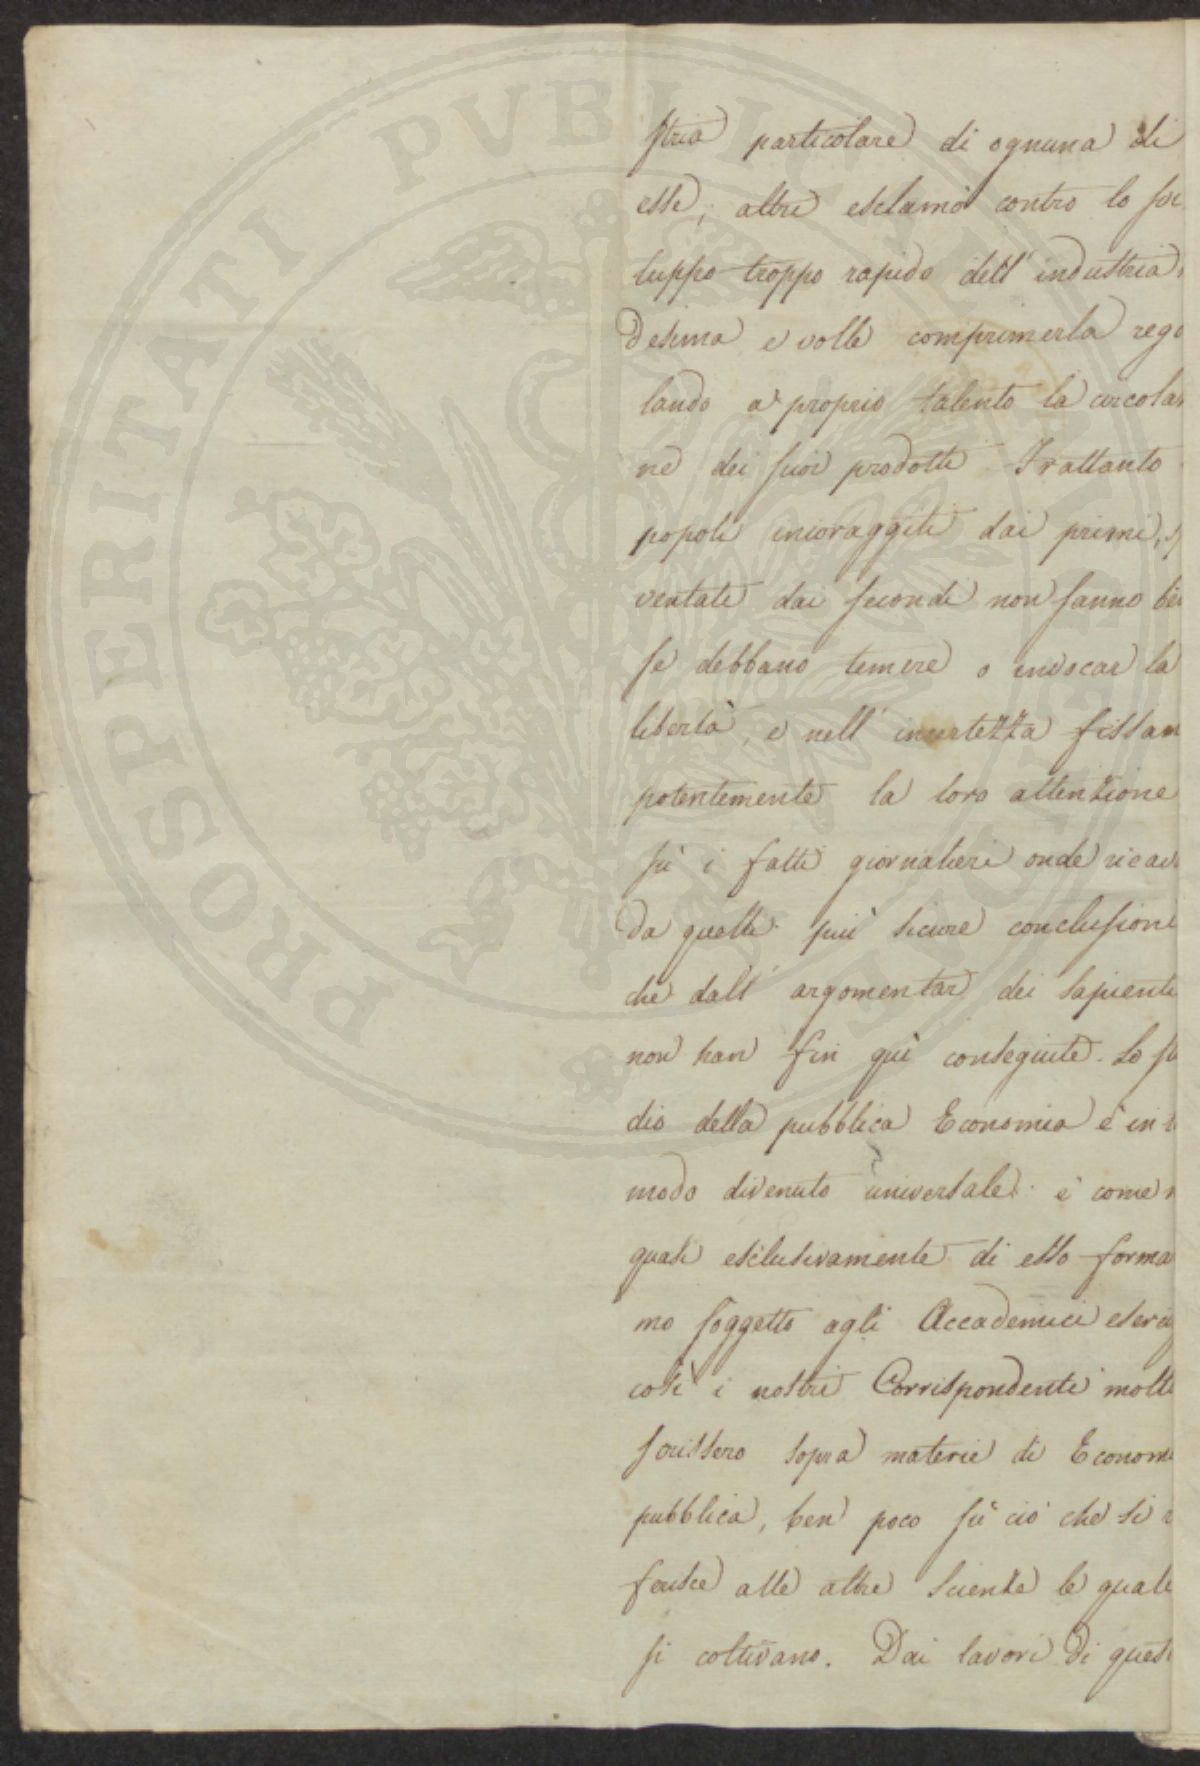 PROSPERITATI PVBLICAE AVGENDAE
stria particolare di ognuna di
esse; altri esclamò contro lo svi
luppo troppo rapido dell' industria
desima e volle comprimerla rego
lando a proprio talento la circola
ne dei suoi prodotti Frattanto
popoli incoraggiti dai primi, s
ventati dai secondi non sanno be
se debbano temere o invocar la
libertà, e nell' incertezza fissan
potentemente la loro attenzione
sù i fatti giornalieri onde ricav
da quelli più sicure conclusioni
che dall' argomentar dei sapienti
non han fin quì conseguite. Lo stu
dio della pubblica Economia è in
modo divenuto universale: e come
quasi esclusivamente di esso forma
mo soggetto agli Accademici eserci
così i nostri Corrispondenti molto
scrissero sopra materie di Econom
pubblica, ben poco sù ciò che si
ferisce alle altre scienze le quali
si coltivano. Dai lavori di quest